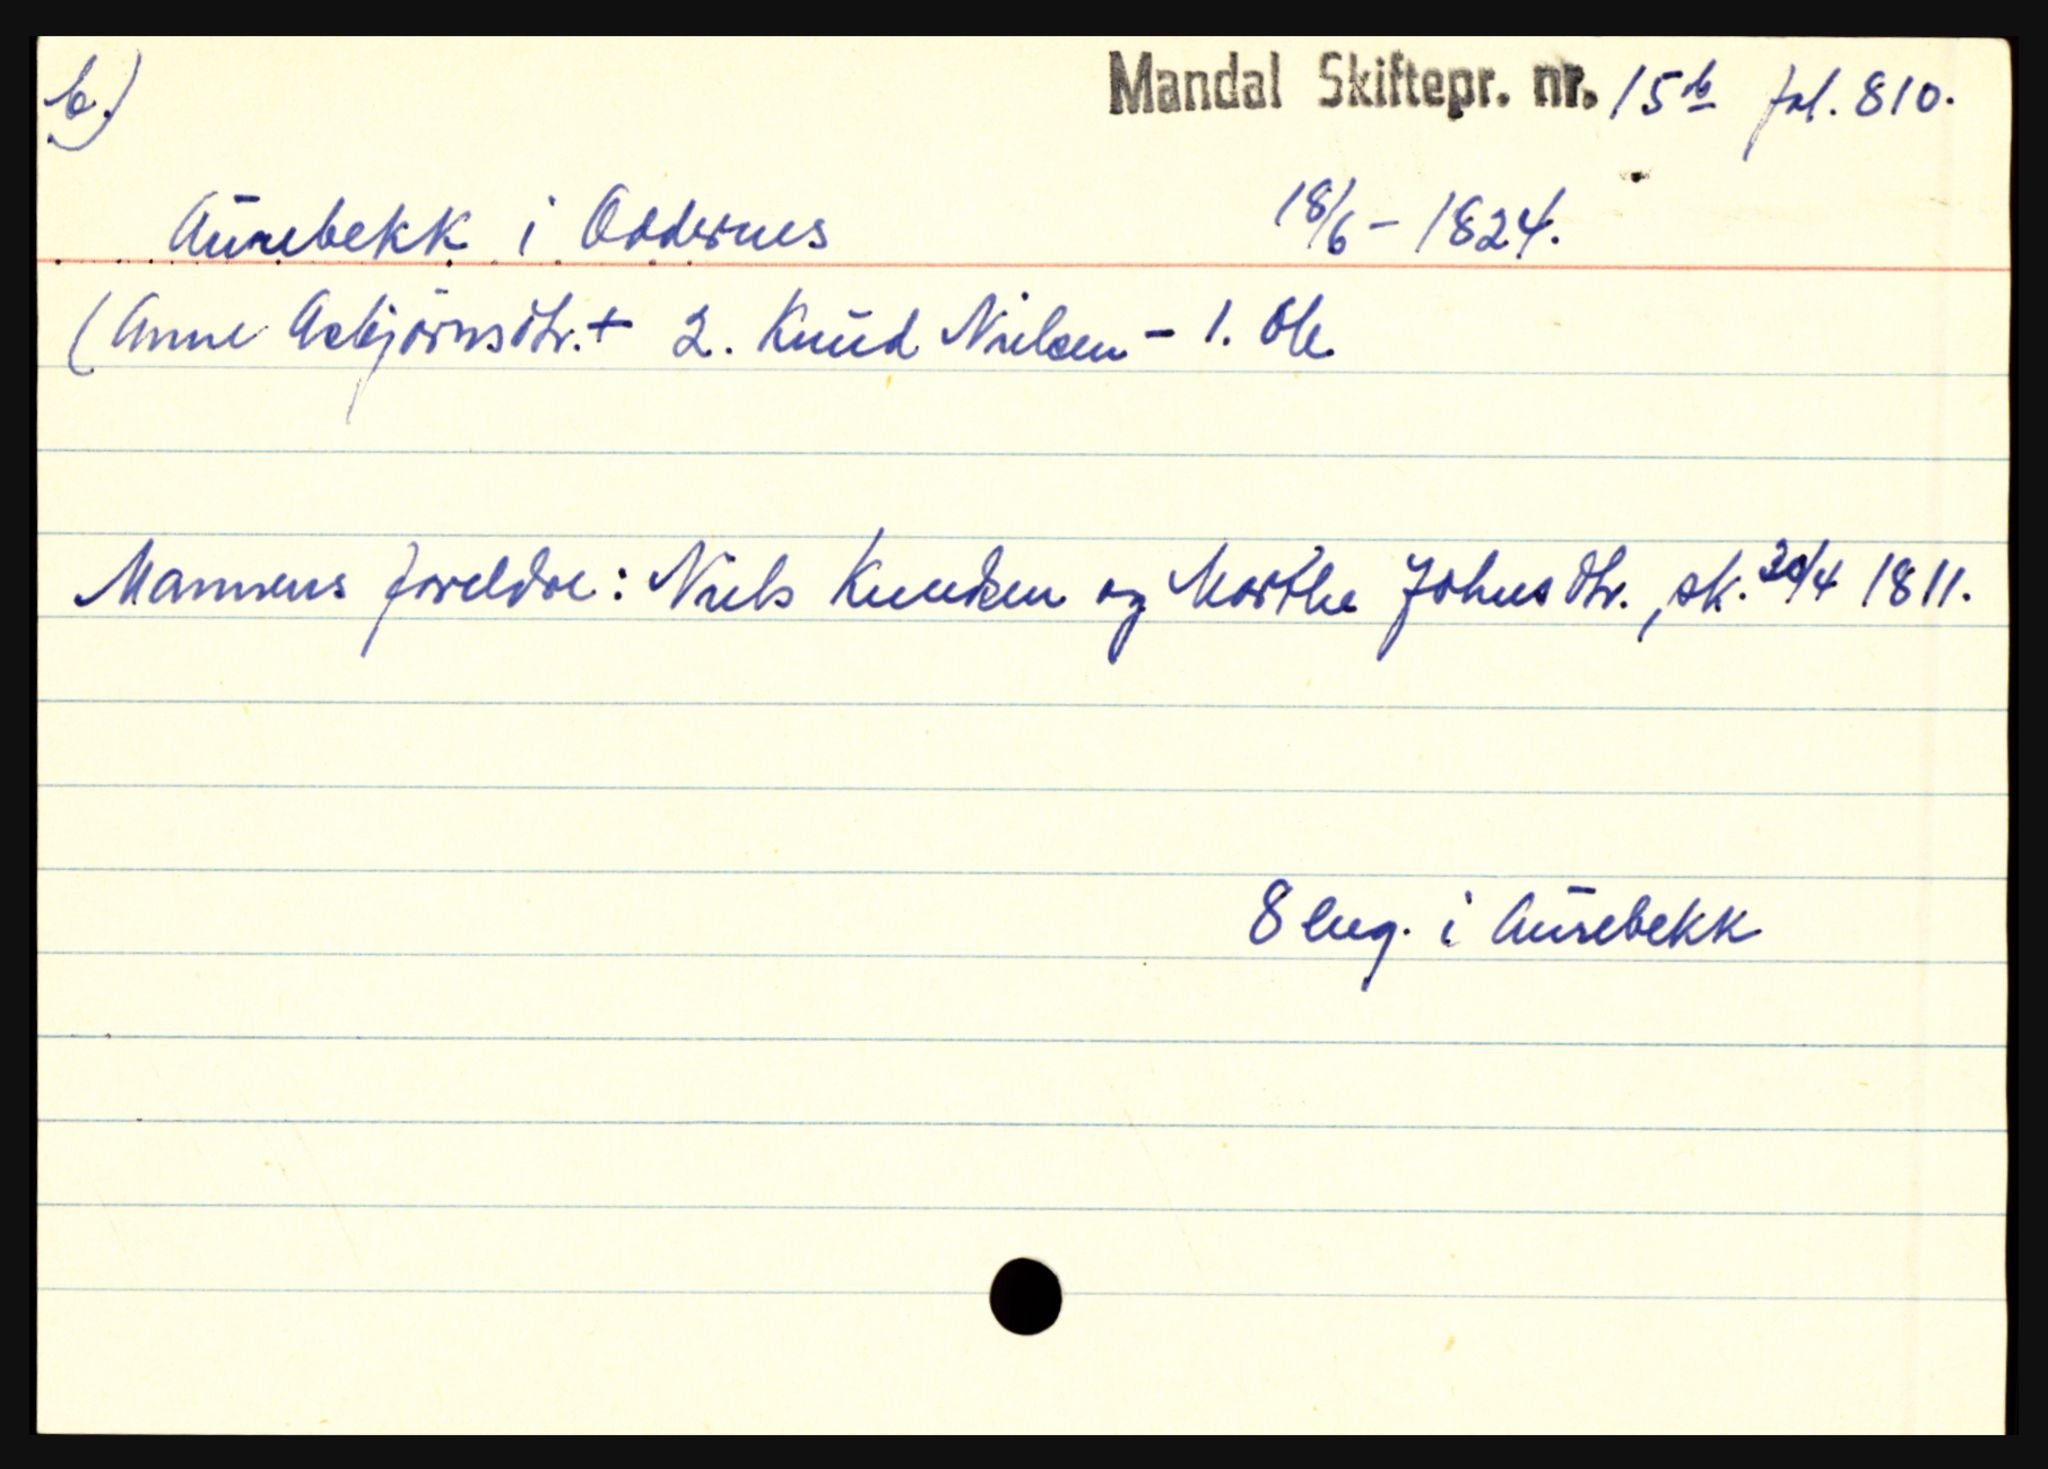 b.) Mandal Skiftepr. nr. 15b fol. 810.
Aurebekk i Oddernes 18/6 - 1824.
(Anne Asbjørnsdtr. + 2. Knud Nielsen - 1. Ole
Mannens foreldre: Niels Knudsen og Marthe Johnsdtr., sk. 30/4 1811.
8 eng. i Aurebekk